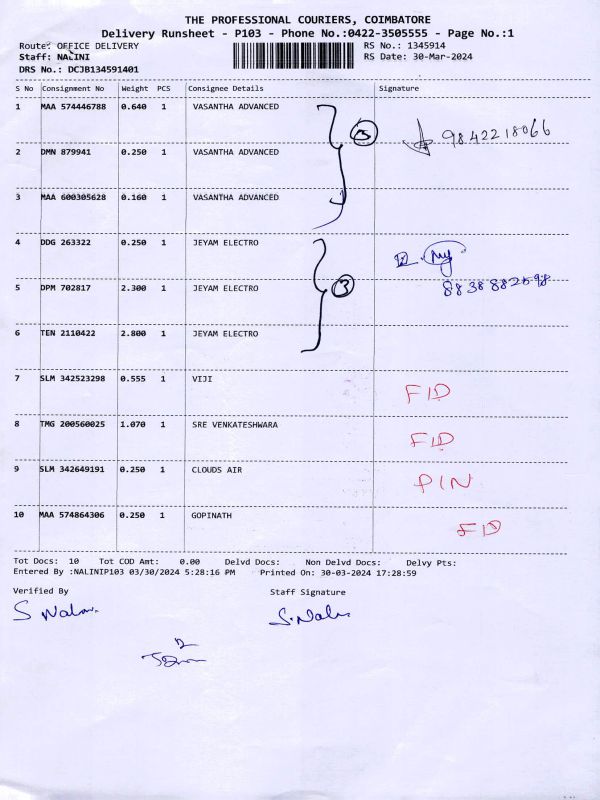 THE PROFESSIONAL COURIERS, COIMBATORE
Delivery Runsheet - P103 - Phone No.:0422-3505555 - Page No.:1
Route: OFFICE DELIVERY RS No.: 1345914
Staff: NALINI RS Date: 30-Mar-2024
DRS No.: DCJB134591401
S No Consignment No Weight PCS Consignee Details Signature
1 MAA 574446788 0.640 1 VASANTHA ADVANCED
9842218066
2 DMN 879941 0.250 1 VASANTHA ADVANCED
3 MAA 600305628 0.160 1 VASANTHA ADVANCED
4 DDG 263322 0.250 1 JEYAM ELECTRO
5 DPM 702817 2.300 1 JEYAM ELECTRO
6 TEN 2110422 2.800 1 JEYAM ELECTRO
7 SLM 342523298 0.555 1 VIJI FID
8 TMG 200560025 1.070 1 SRE VENKATESHWARA FID
9 SLM 342649191 0.250 1 CLOUDS AIR PIN
10 MAA 574864306 0.250 1 GOPINATH FID
Tot Docs: 10 Tot COD Amt: 0.00 Delvd Docs: Non Delvd Docs: Delvy Pts:
Entered By :NALINIP103 03/30/2024 5:28:16 PM Printed On: 30-03-2024 17:28:59
Verified By Staff Signature
S Nalini S. Nalini